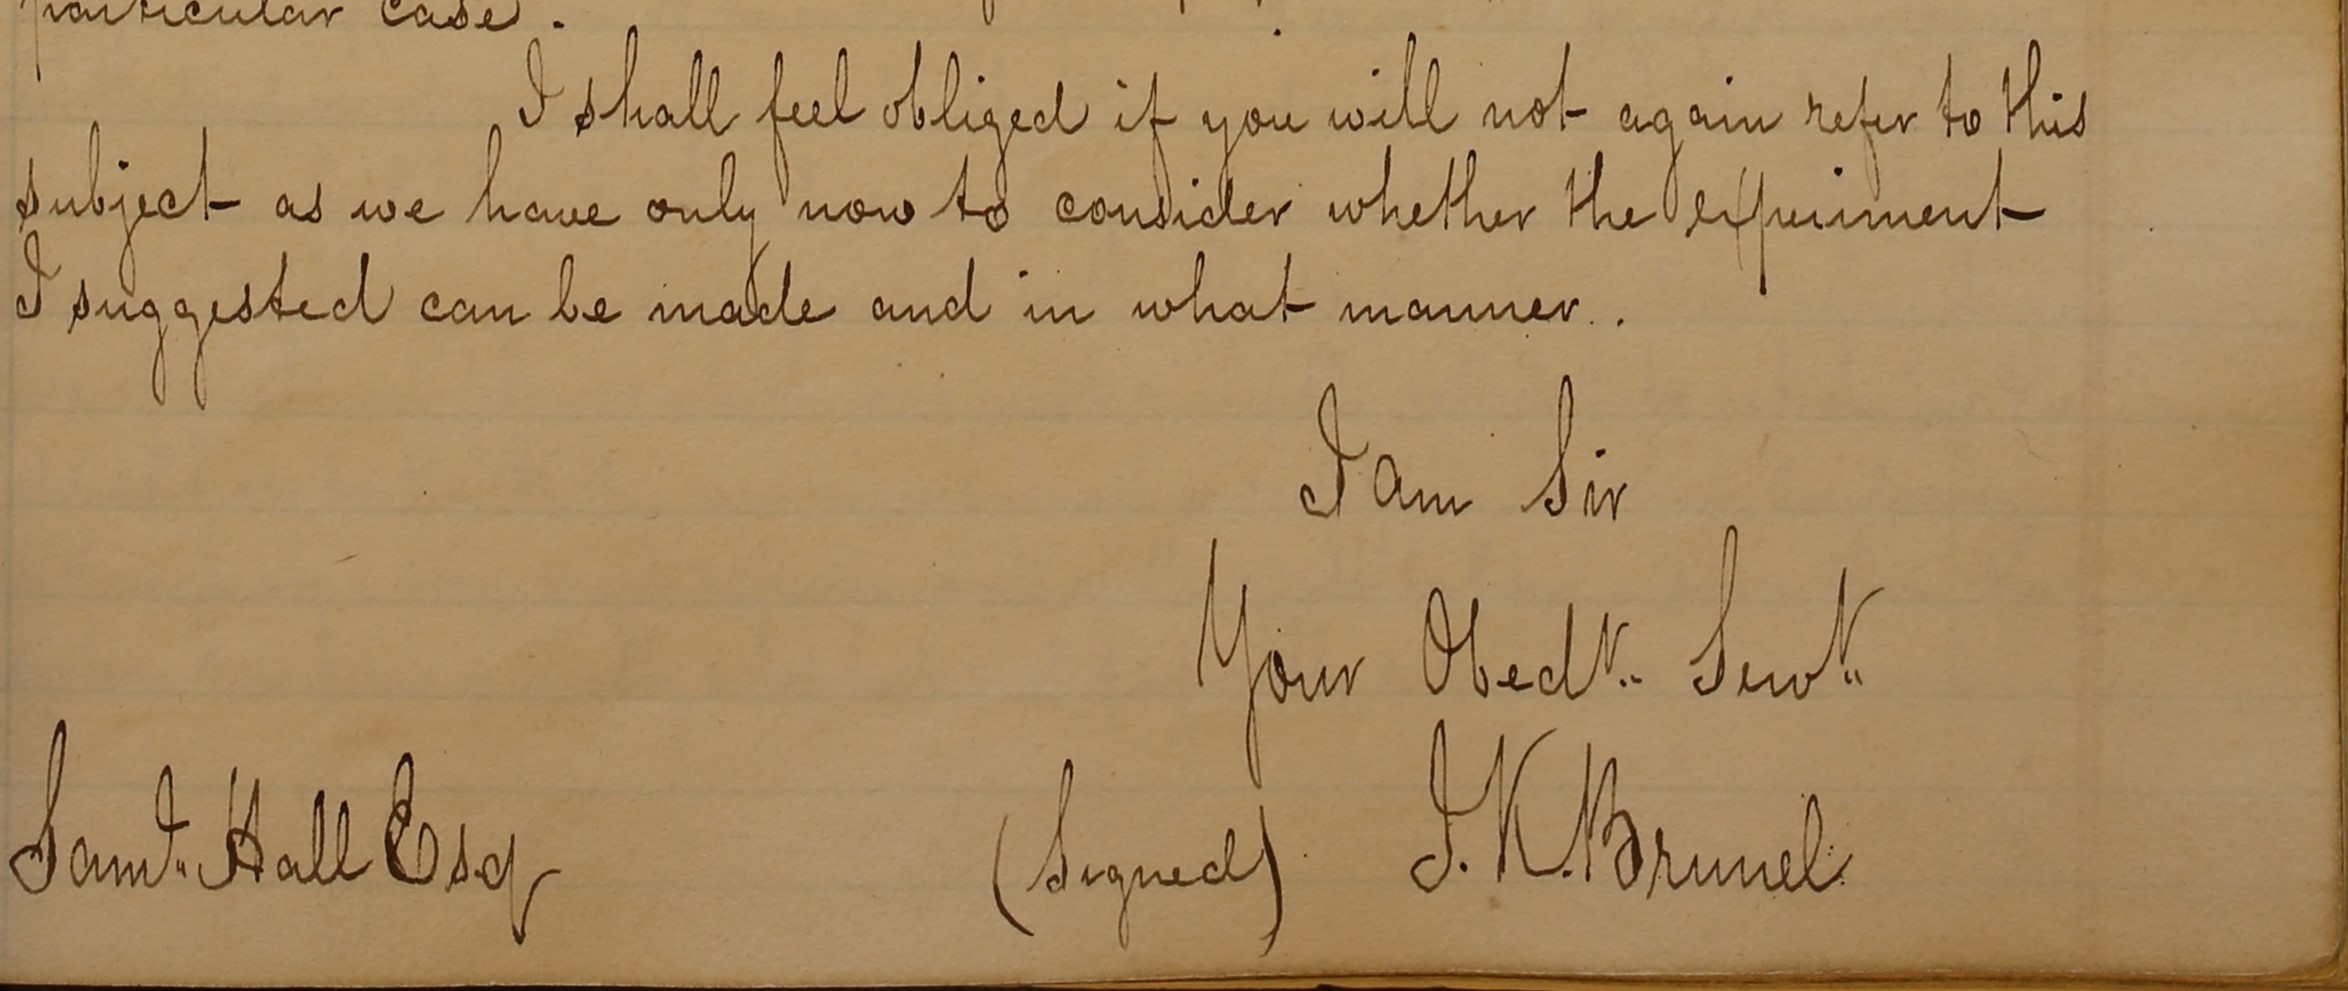 particular case.
I shall feel obliged if you will not again refer to this
subject as we have only now to consider whether the experiment
I suggested can be made and in what manner.
I am Sir
Your Obedt. Servt.
Saml. Hall Esq (Signed) I. K. Brunel